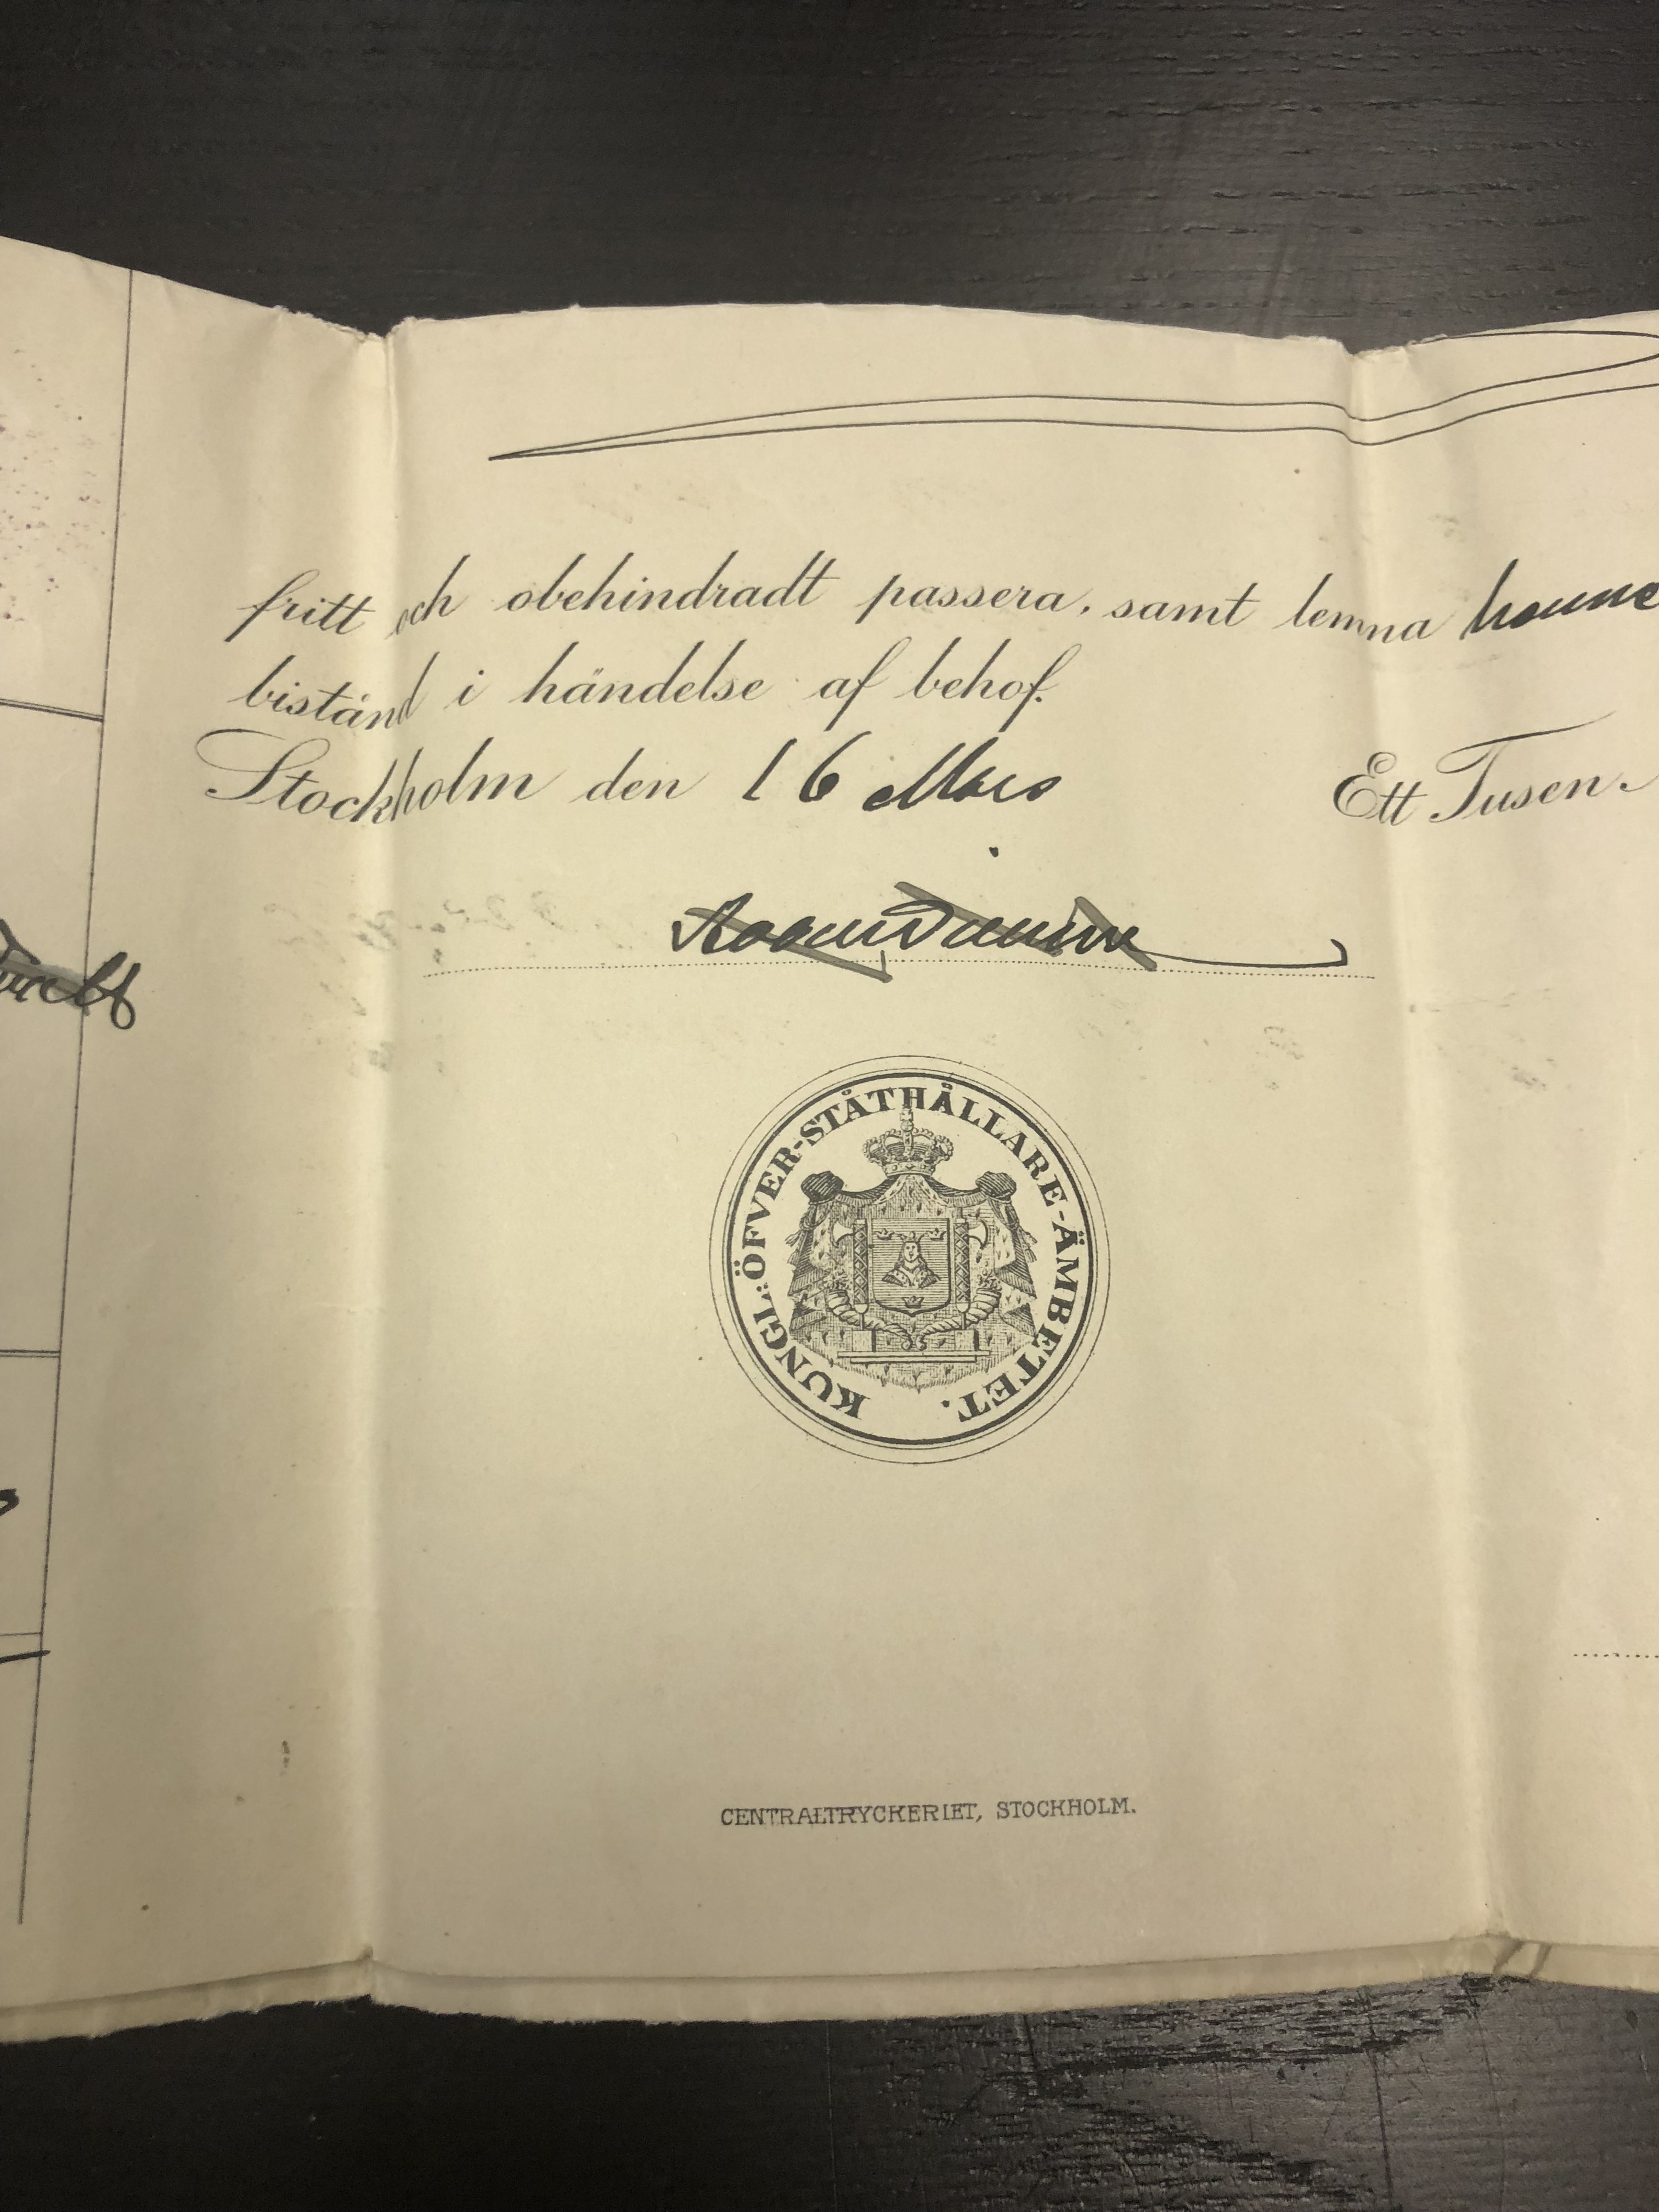 fritt och obehindradt passera, samt lemna
bistånd i händelse af behof.
Stockholm den 16 Mars Ett Tusen
KUNGL: ÖFVER-STÅTHÅLLARE-ÄMBETET.
CENTRALTRYCKERIET, STOCKHOLM.